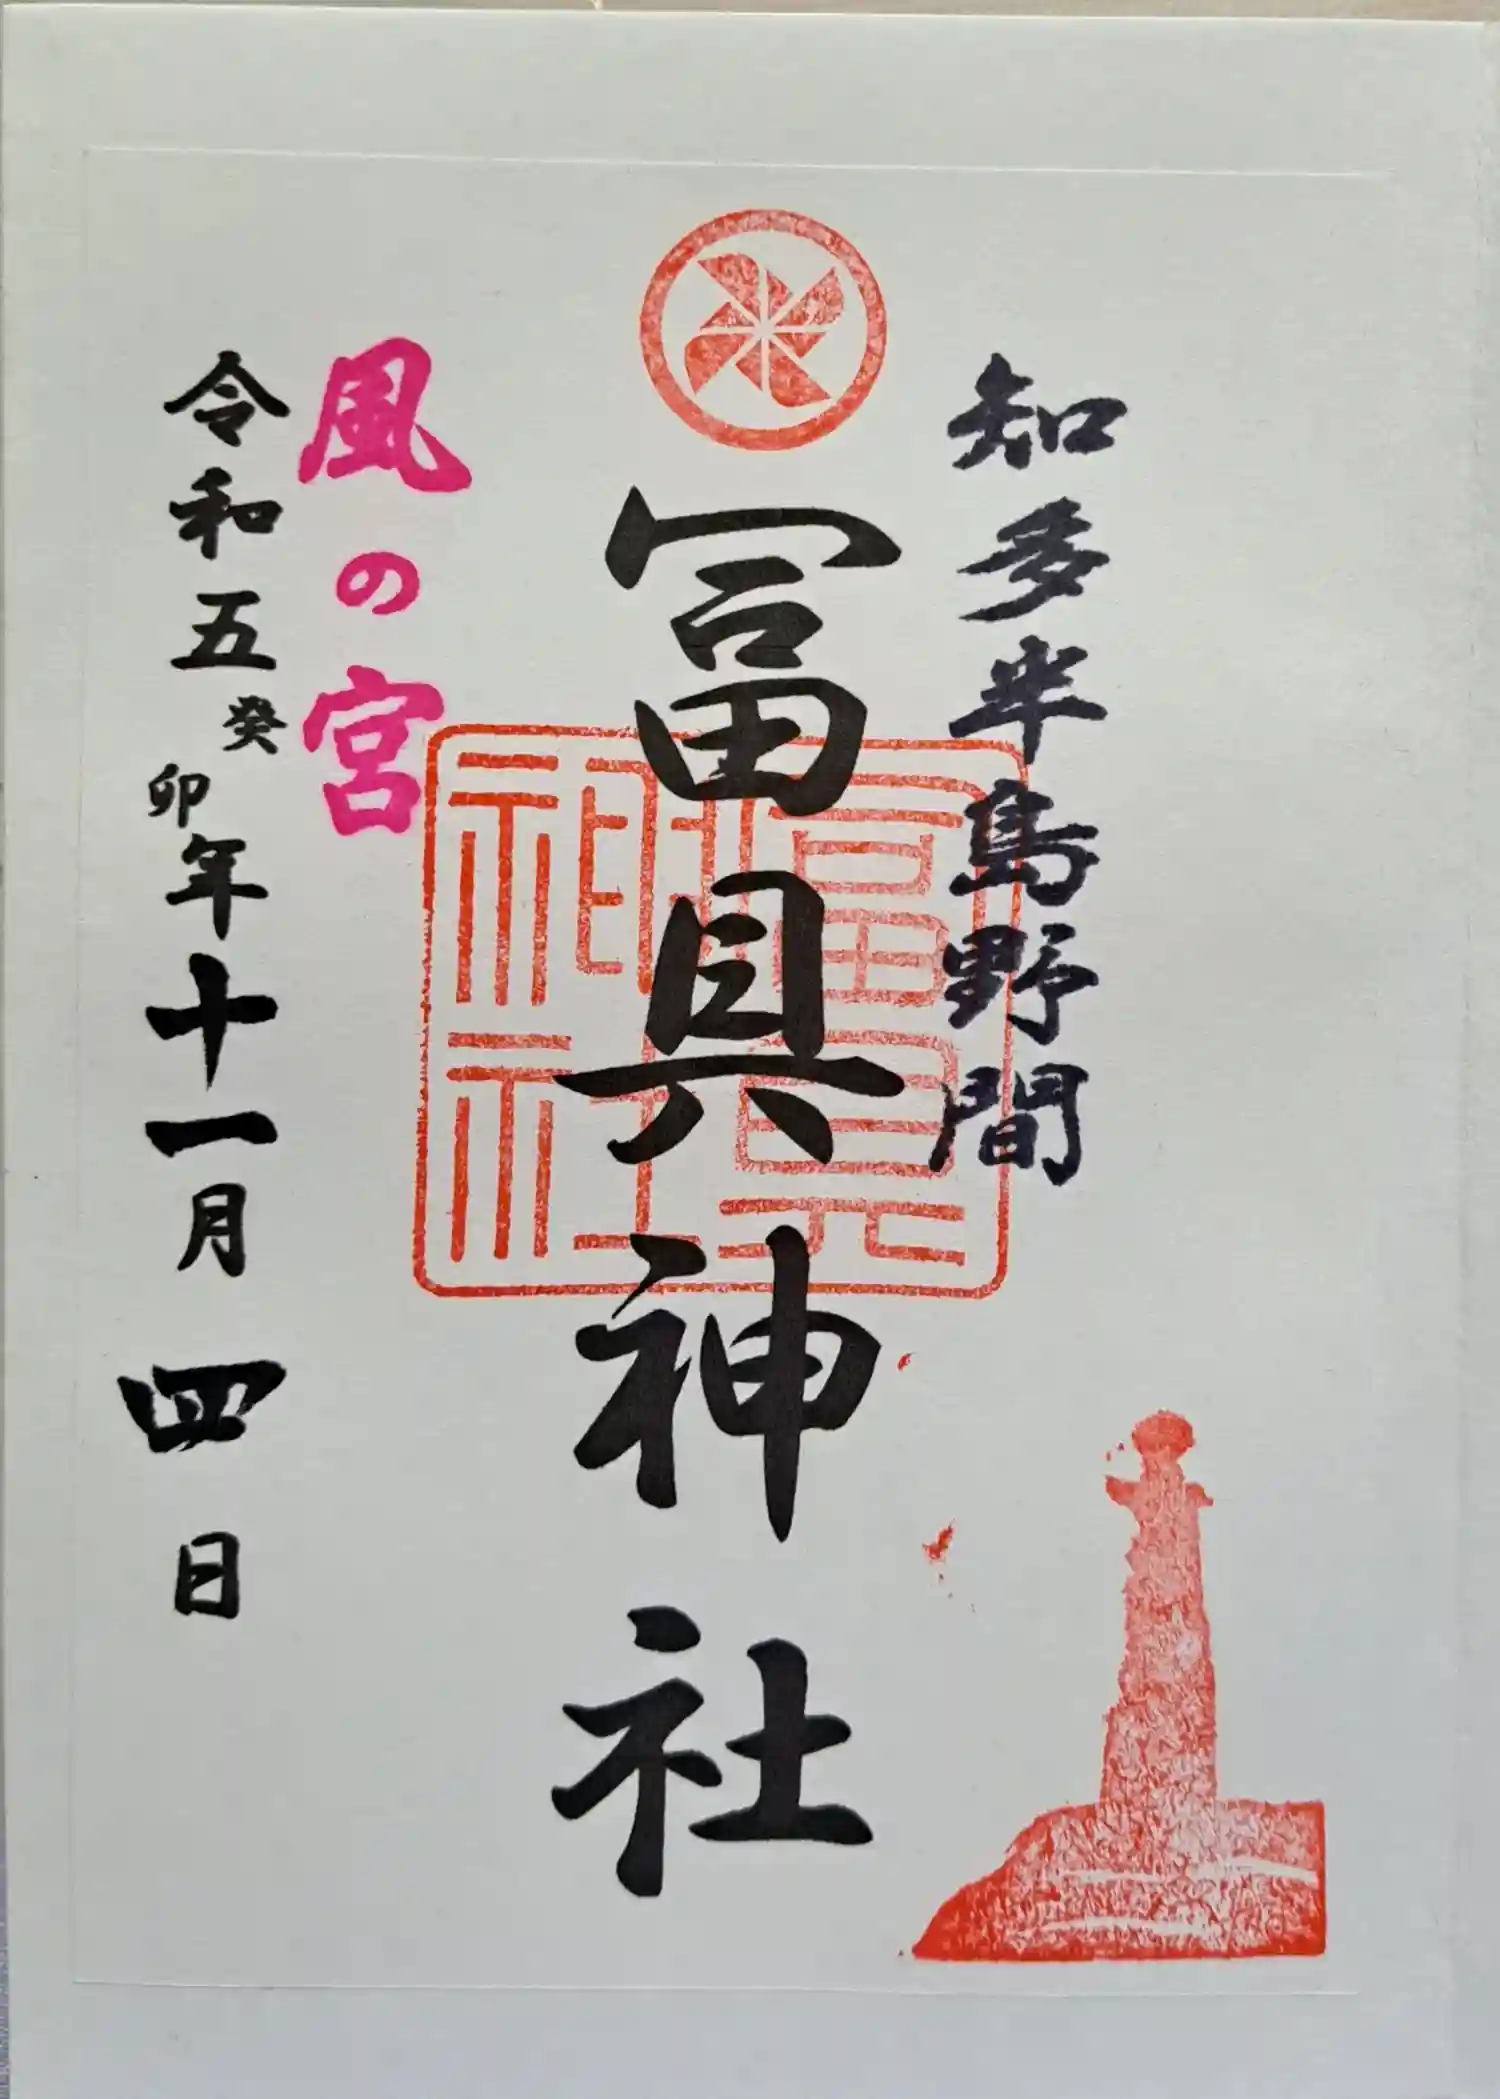 知多半島野間
冨具神社
冨具神社
風の宮
令和五癸卯年十一月四日